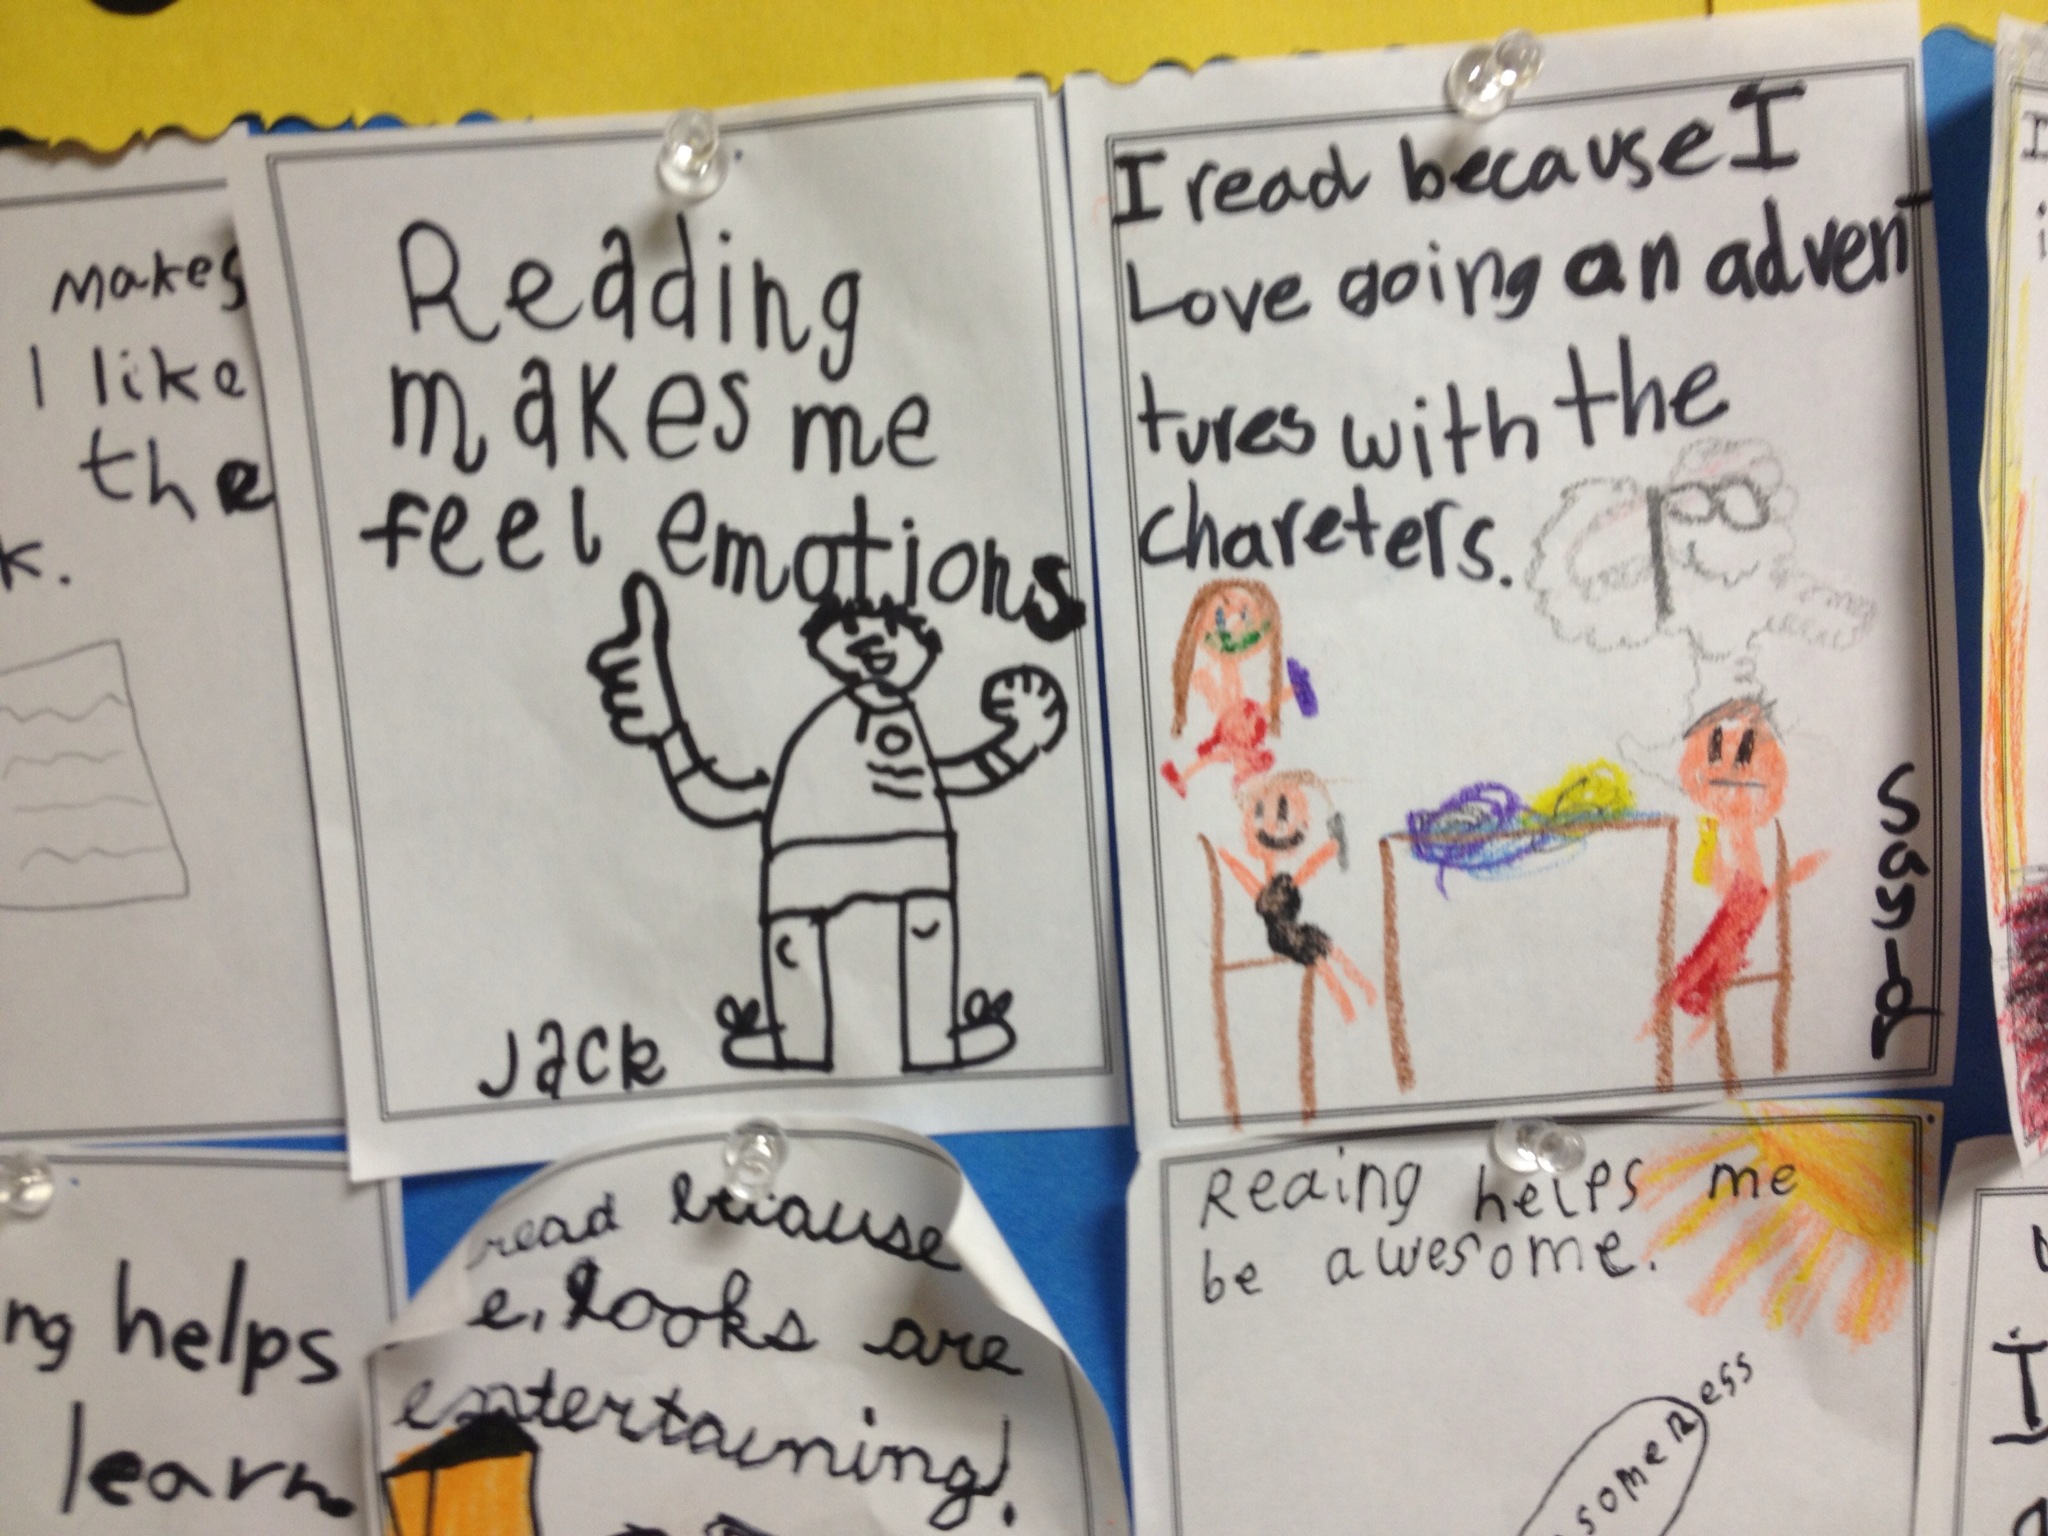 makes
I like
the
k.
Reading
makes me
feel emotions
Jack
I read because I
Love going an adven
tures with the
chareters.
ng helps
learn
read because
e, books are
entertaining!
Reaing helps me
be awesome.
someness
I